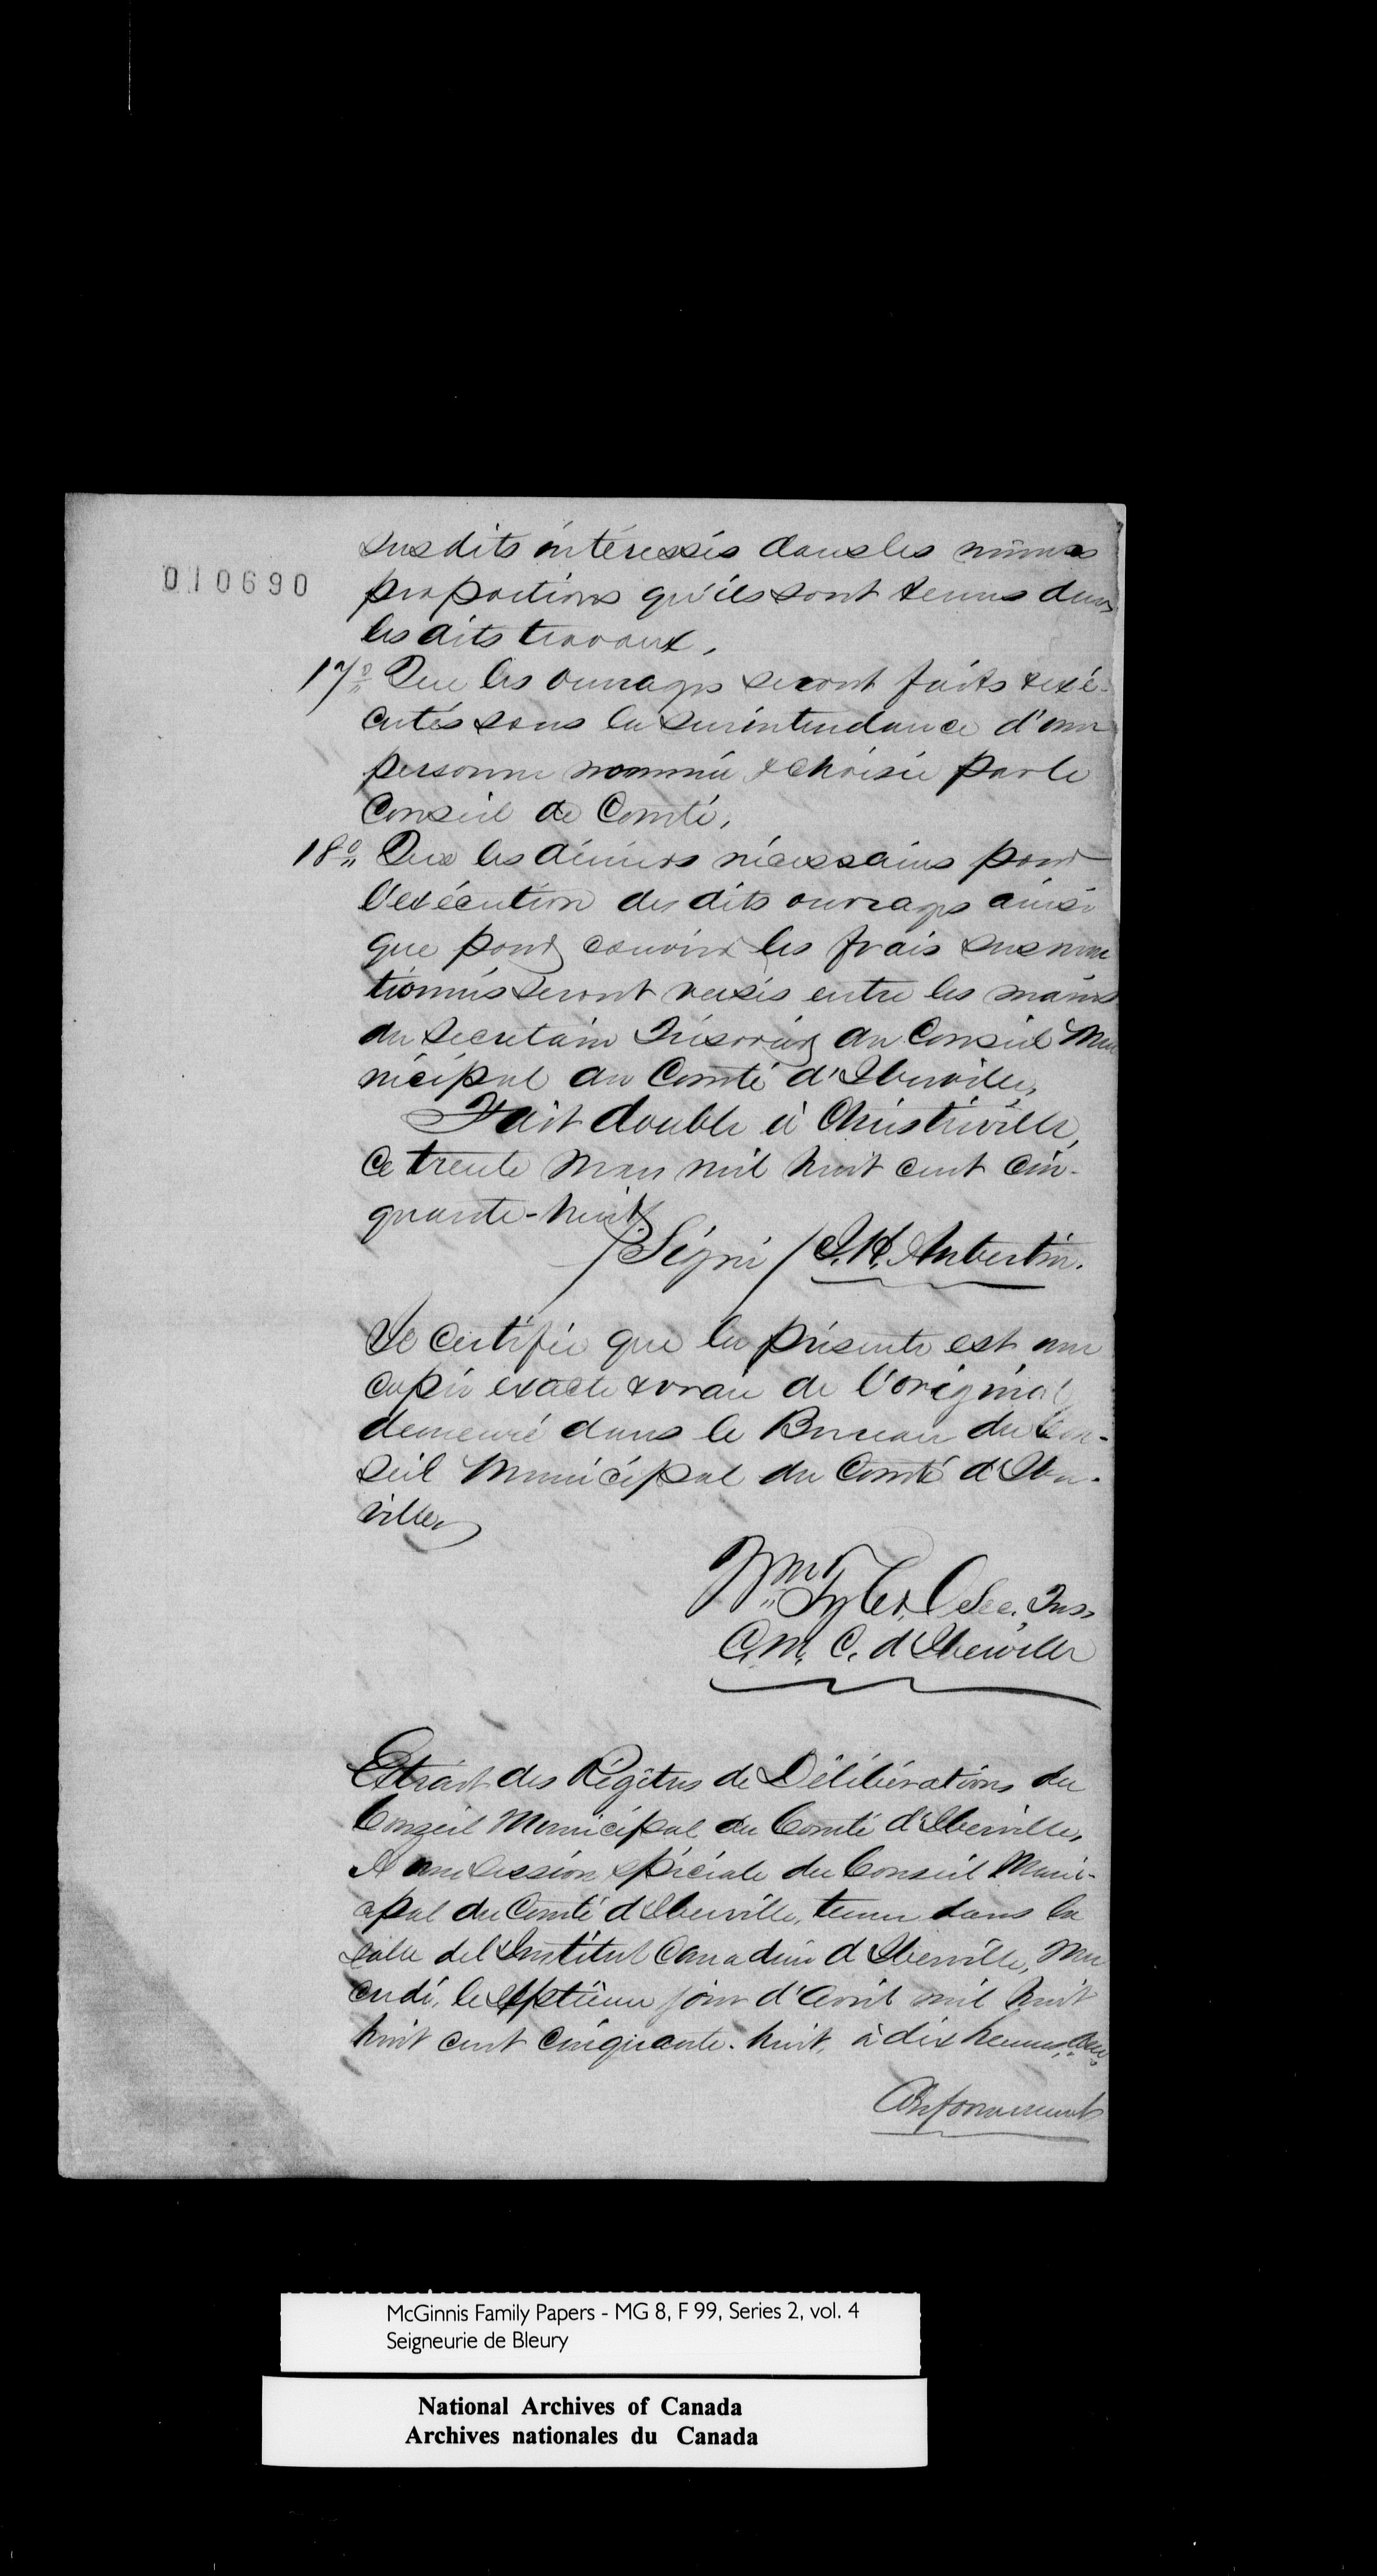 010690
susdits intéressés dans les mêmes
proportions qu'ils sont tenus dans
les dits travaux.
17o Que les ouvrages seront faits & exé-
cutés sous la surintendance d'une
personne nommée & choisie par le
Conseil de Comté.
18o Que les déniers nécessaires pour
l'exécution des dits ouvrages ainsi
que pour couvrir les frais susmen
tionnés seront versés entre les mains
du Secretaire Trésorier du Conseil Mu
nicipal du Comté d'Iberville,
Fait double à Christieville,
Ce trente Mars mil huit cent cin-
quante-huit
/Signé/ J. H. Aubertin.
Je certifie que la présente est une
copie exacte & vraie de l'original
demeuré dans le Bureau du Con-
seil Municipal du Comté d'Iber-
ville
Wm Tyler Sec. Trés.
C. M. C. d'Iberville
Extrait des Régîtres de Délibérations du
Conseil Municipal du Comté d'Iberville,
A une Session spéciale du Conseil Muni-
cipal du Comté d'Iberville, tenue dans la
salle de l'Institut Canadien d'Iberville, Mer
credi, le septième jour d'Avril mil huit
huit cent cinquante-huit, à dix heures
Conformément
McGinnis Family Papers - MG 8, F 99, Series 2, vol. 4
Seigneurie de Bleury
National Archives of Canada
Archives nationales du Canada